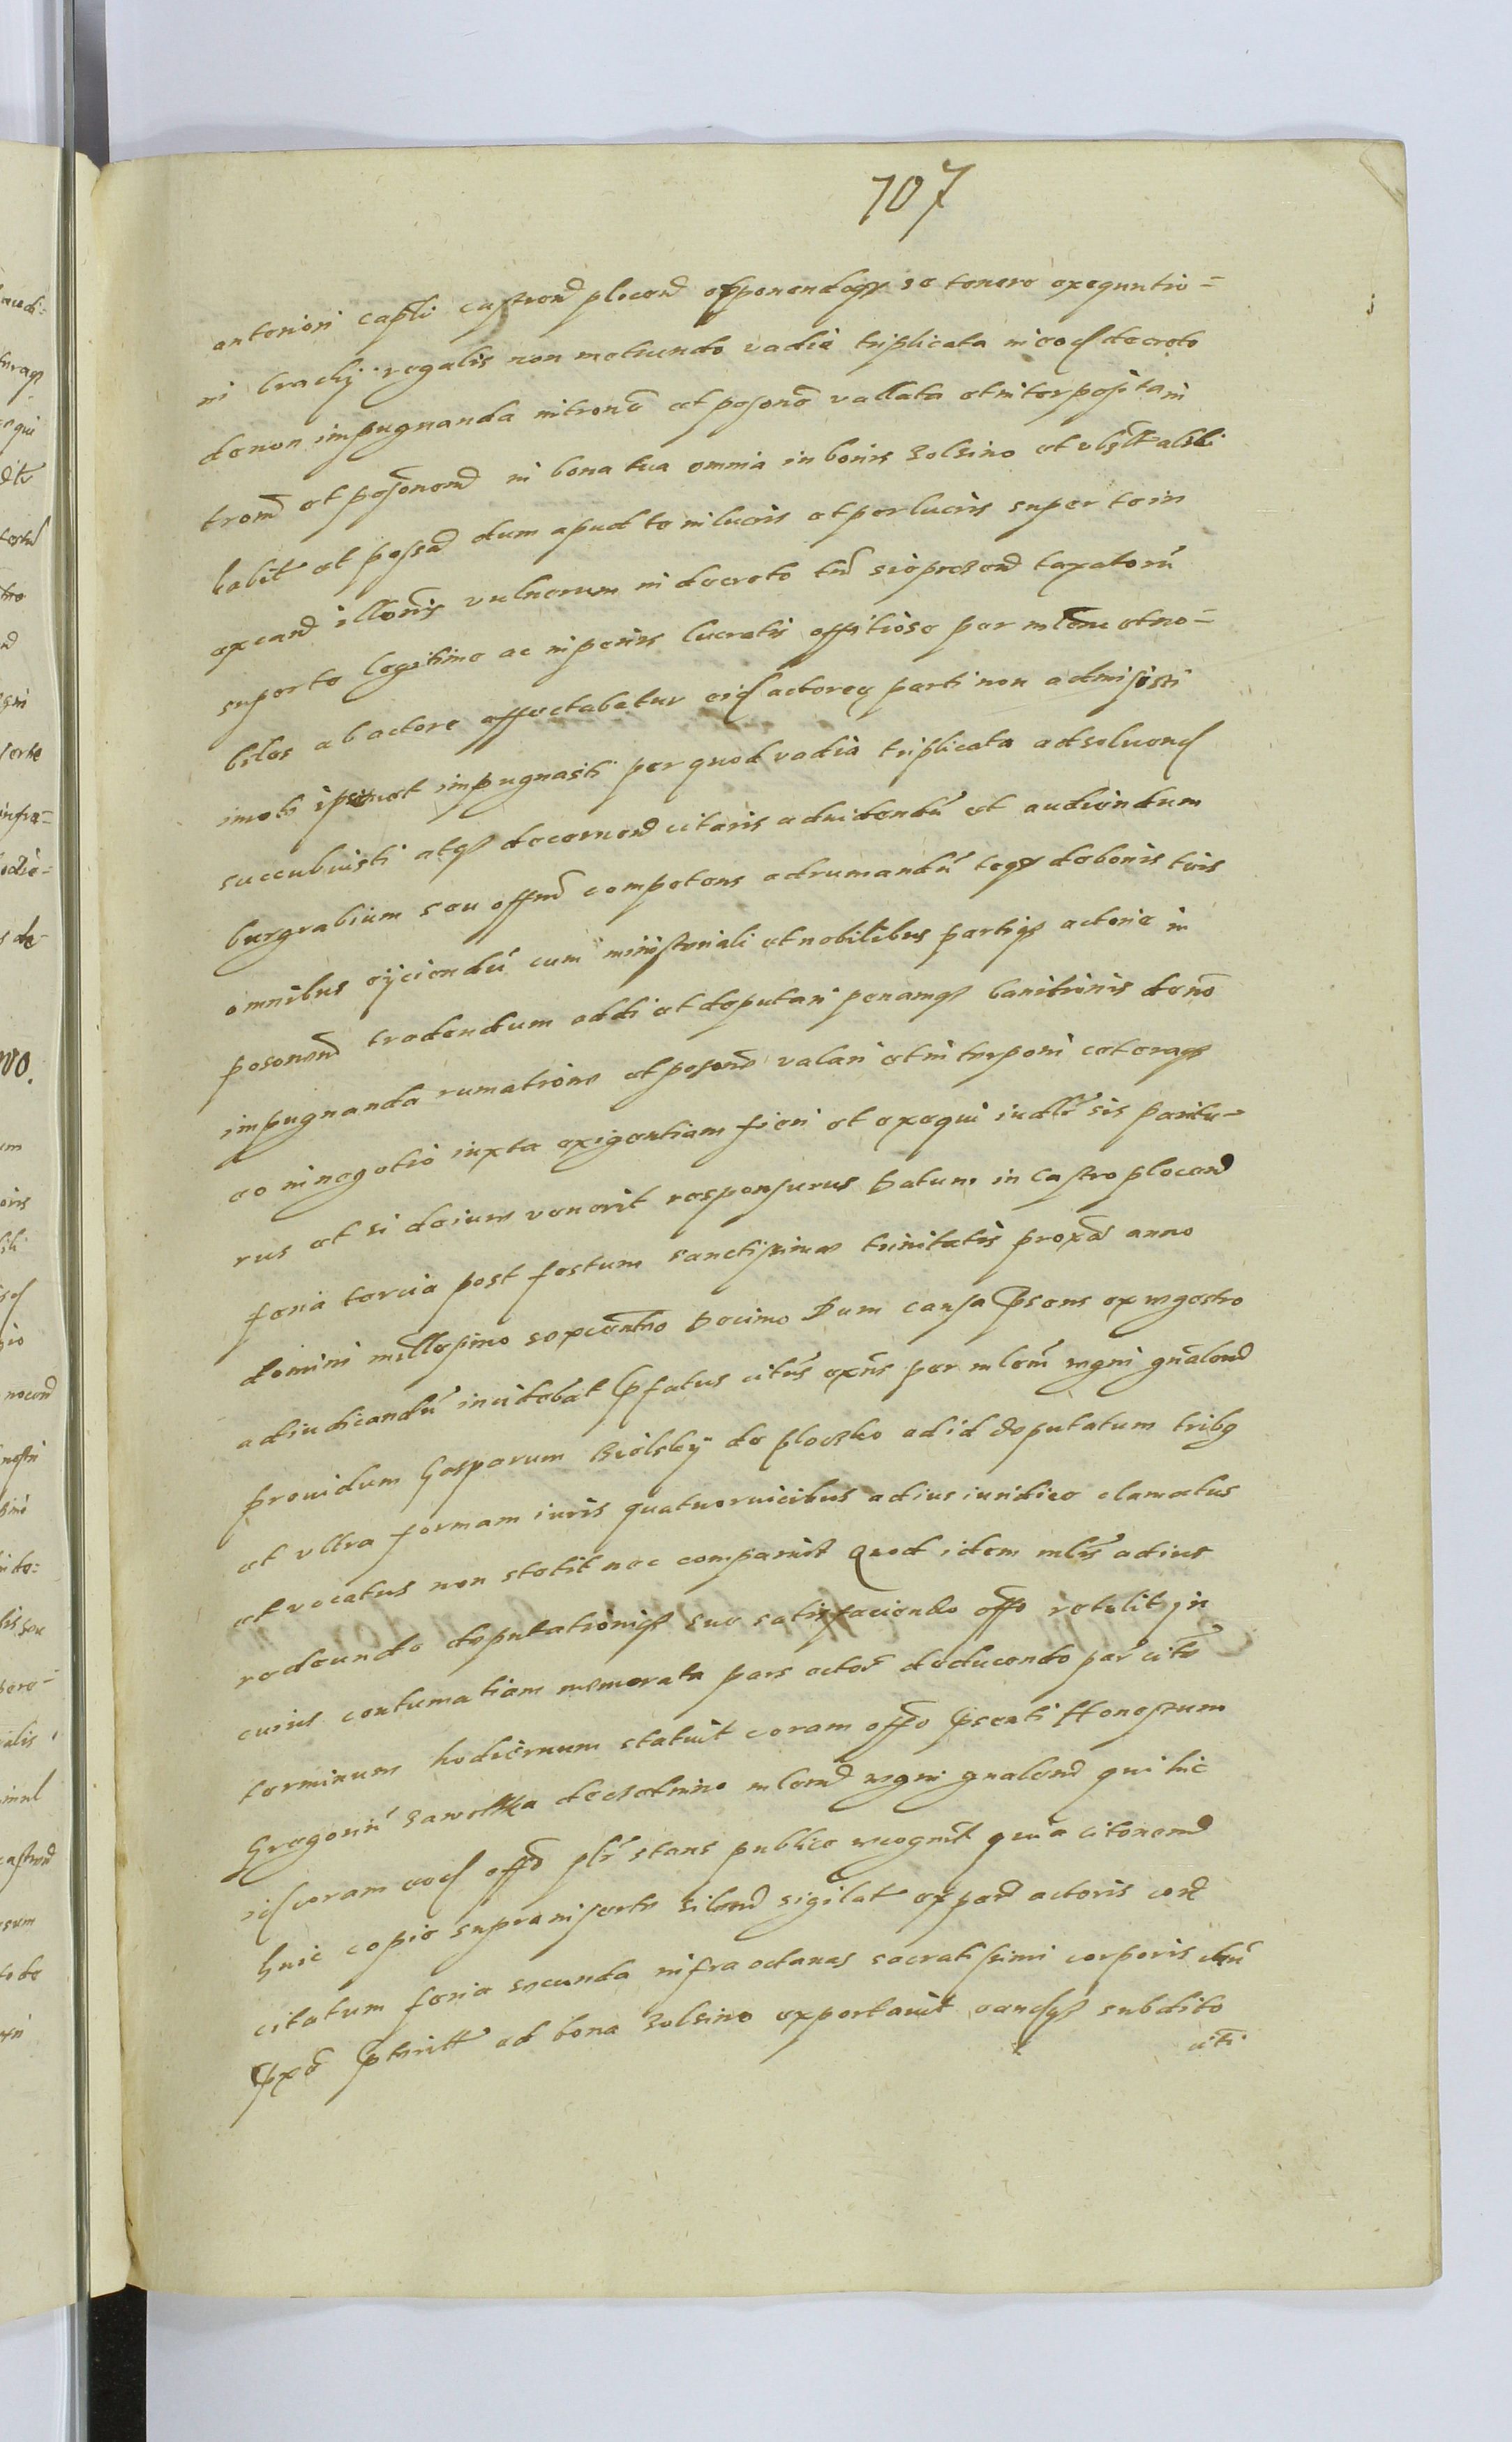 107
anteriori capłi castreñ plocen opponendoqꝫ se tenere exequutio=
ni brachij regalis non metuendo vadia triplicata in eod decreto
de non impugnanda intromē et posonē vallata et interposita in
trom̃ et posonem in bona tua omnia in bonis Zolsino et
habit et possa dum apud te in lucris et perlucris super te in
illoris vulnerum in decreto taxatorũ
superto legitime ac in penis lucratis offitiose per mlem et no=
biles ab actore affectabatur eid actoreę parti non admisisti
imo et impugnasti per quod vadia triplicata adsoluend
succubuisti atqꝫ decernend citaris ad videndũ et audiendum
burgrabium seu offm̃ competens ad rumandũ teqꝫ de bonis tuis
omnibus eijciendũ cum ministeriali et nobilibus partiqꝫ actoreę in
posonem tradendum addi et deputari penamqꝫ banitionis de nō
impugnanda rumatione et posone valari et interponi ceteraqꝫ
eo in negotio iuxta exigentiam fieri et exequi iudłr sis paritu=
rus et si de iure venerit responsurus Datum in Castro plocen
feria tercia post festum sanctissimae trinitatis proxa anno
domini millesimo sexcentmo decimo Dum causa psens ex regestro
adiudicandũ incidebat pfatus citus exns per mlem regni gnalem
prouidum Gasparum Bielsky de plocsko ad id deputatum tribꝫ
et vltra formam iuris quatuor vicibus ad ius iuridice clamatus
et vocatus non stetit nec comparuit Quod idem mlis ad ius
redeundo deputationiqꝫ suę satisfaciendo offo retulit in
cuius contumatiam memorata pars actor deducendo par cite
terminum hodiernum statuit coram offo psenti Honestum
Gregoriũ Zawolka de Cetnino mlem regni gnalem qui hic
id coram eod offo plr stans publice recognit quia citonem
huic copie supra inserte silem sigilat ex parte actoris con
citatum feria secunda infra octauas sacratissimi corporis chri
pxe pterit ad bona Zolsino exportauit eandqꝫ subdito
citi